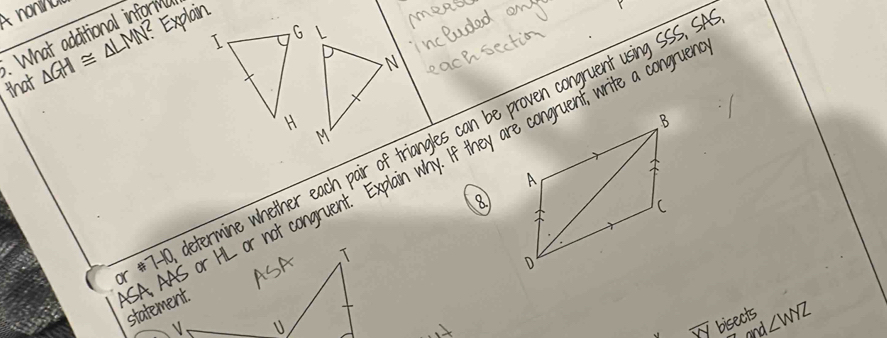 A
5. What additional
that ΔGHI ≅ ΔLMN? Explain.
I
G
H
L
N
M
included
each section
or #7-10, determine whether each pair of triangles can be proven congruent using SSS, SAS,
ASA, AAS or HL or not congruent. Explain why. If they are congruent, write a congruency
statement.
ASA
V
U
T
8.
A
B
C
D
XY bisects
and ∠WYZ